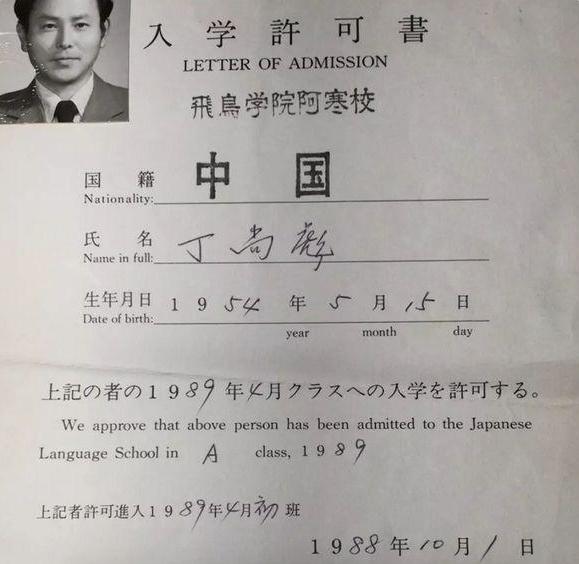 入学許可書
LETTER OF ADMISSION
飛鳥学院阿寒校
国籍 中国
Nationality:
氏名 丁尚彪
Name in full:
生年月日 1954年5月15日
Date of birth: year month day
上記の者の1989年4月クラスへの入学を許可する。
We approve that above person has been admitted to the Japanese
Language School in A class, 1989
上記者許可進入1989年4月初班
1988年10月1日